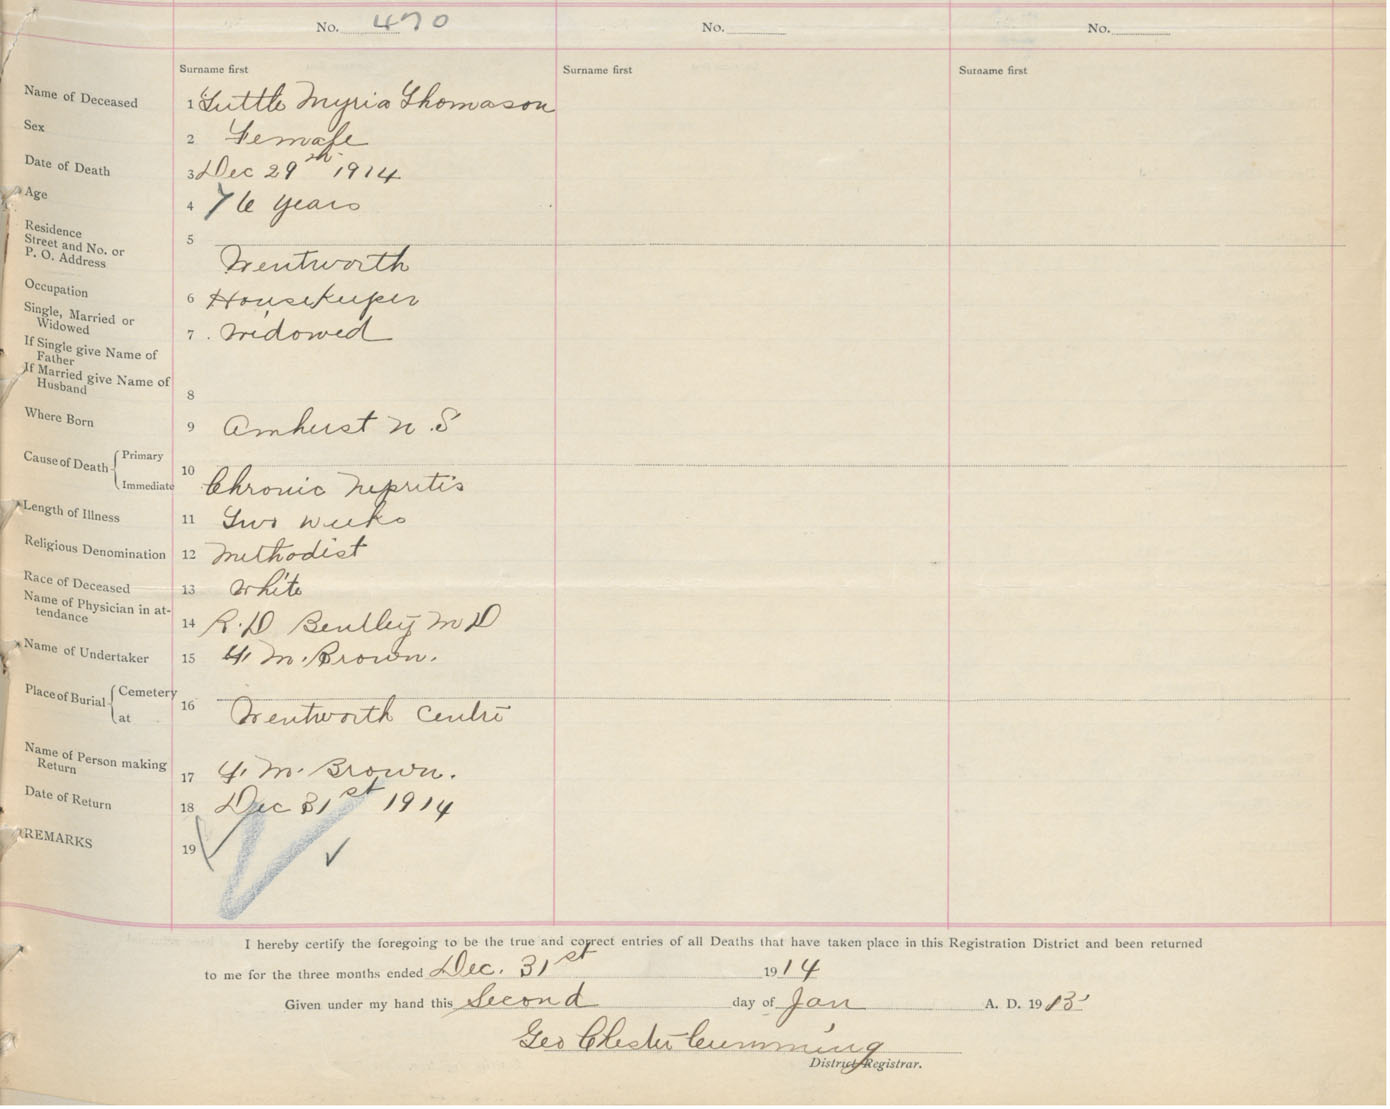 No. 470 No. No.
Surname first Surname first Surname first
Name of Deceased 1 Tuttle Myria Thomason
Sex 2 Female
Date of Death 3 Dec 29th 1914
Age 4 76 years
Residence
Street and No. or
P. O. Address 5 Wentworth
Occupation 6 Housekeeper
Single, Married or
Widowed 7 Widowed
If Single give Name of
Father
If Married give Name of
Husband 8
Where Born 9 Amherst N.S
Cause of Death Primary
Immediate 10 Chronic Nepritis
Length of Illness 11 Two weeks
Religious Denomination 12 Methodist
Race of Deceased 13 White
Name of Physician in at-
tendance 14 R.D Bentley MD
Name of Undertaker 15 M. Brown.
Place of Burial Cemetery
at 16 Wentworth Centre
Name of Person making
Return 17 M. Brown.
Date of Return 18 Dec 31st 1914
REMARKS 19
I hereby certify the foregoing to be the true and correct entries of all Deaths that have taken place in this Registration District and been returned
to me for the three months ended Dec. 31st 1914
Given under my hand this Second day of Jan A. D. 19
Geo Chester Cumming
District Registrar.